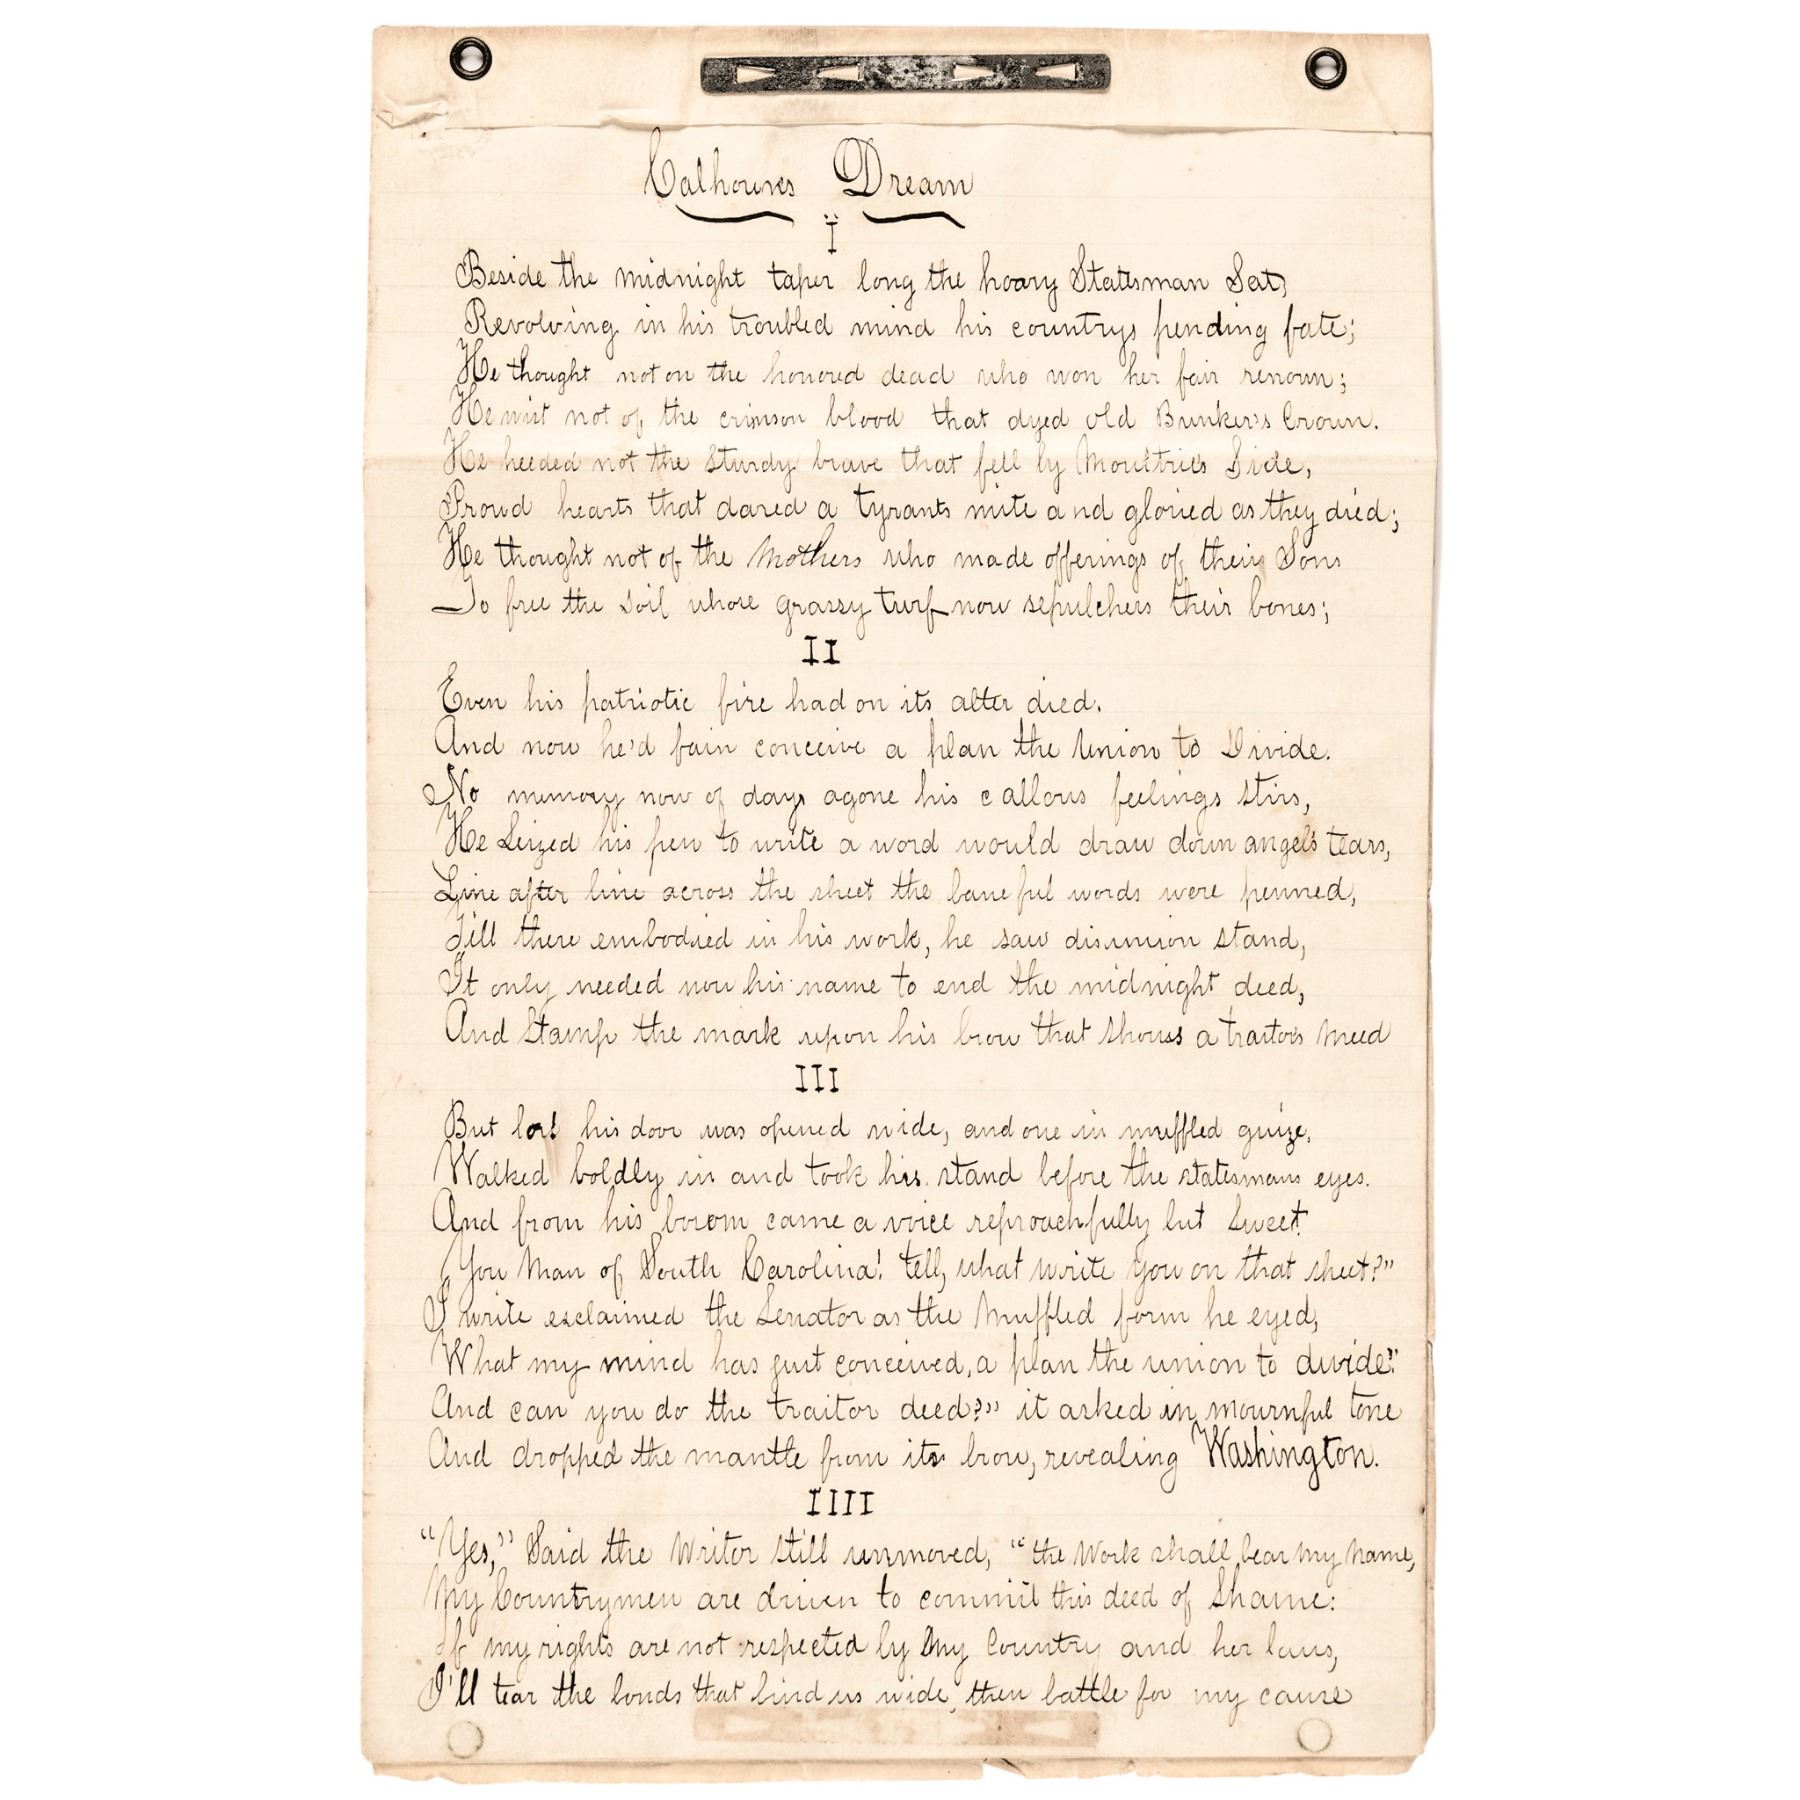 Calhouns Dream
I
Beside the midnight taper long the hoary Statesman Sat,
Revolving in his troubled mind his countrys pending fate;
He thought not on the honored dead who won her fair renown;
He wist not of the crimson blood that dyed old Bunker's Crown.
He heeded not the Sturdy brave that fell by Moultrie's Side,
Proud hearts that dared a tyrants mite and gloried as they died;
He thought not of the Mothers who made offerings of their Sons
To free the Soil whose grassy turf now sepulchers their bones;
II
Even his patriotic fire had on its alter died.
And now he'd fain conceive a plan the Union to Divide.
No memory now of days agone his callous feelings stirs,
He Seized his pen to write a word would draw down angel's tears,
Line after line across the sheet the baneful words were penned,
Till there embodied in his work, he saw disunion stand,
It only needed now his name to end the midnight deed,
And Stamp the mark upon his brow that Shows a traitors Meed
III
But lo! his door was opened wide, and one in muffled guize,
Walked boldly in and took his stand before the statesmans eyes.
And from his bosom came a voice reproachfully but Sweet
You Man of South Carolina! tell, what write you on that sheet?"
I write exclaimed the Senator as the Muffled form he eyed,
What my mind has just conceived, a plan the union to divide!"
And can you do the traitor deed?" it asked in mournful tone
And dropped the mantle from its brow, revealing Washington.
IIII
"Yes," Said the Writor still unmoved, "the Work shall bear my Name,
My Countrymen are driven to commit this deed of Shame:
If my rights are not respected by My Country and her laws,
I'll tear the bonds that bind us wide, then battle for my cause